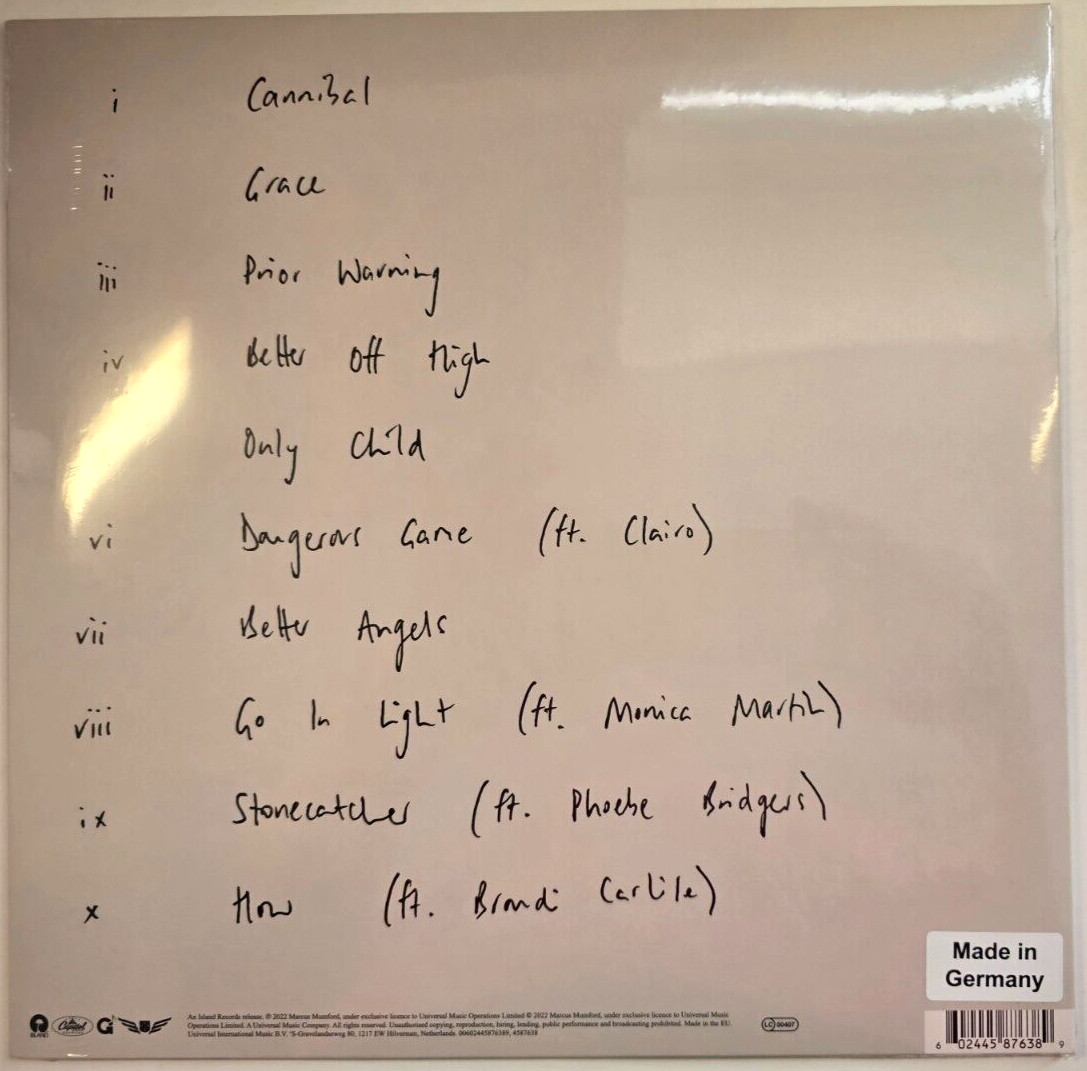 i Cannibal
ii Grace
iii Prior Warning
iv Better Off High
Only Child
vi Dangerous Game (ft. Clairo)
vii Better Angels
viii Go In Light (ft. Monica Martin)
ix Stonecatcher (ft. Phoebe Bridgers)
x How (ft. Brandi Carlile)
Made in
Germany
ISLAND
Capitol
An Island Records release. ℗ 2022 Marcus Mumford, under exclusive licence to Universal Music Operations Limited © 2022 Marcus Mumford, under exclusive licence to Universal Music
Operations Limited. A Universal Music Company. All rights reserved. Unauthorized copying, reproduction, hiring, lending, public performance and broadcasting prohibited. Made in the EU.
Universal International Music B.V. 'S-Gravelandseweg 80, 1217 EW Hilversum, Netherlands. 00602445876389, 4587638
LC 00407
6 02445 87638 9